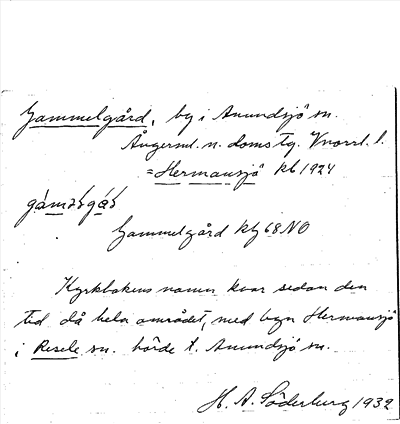 Gammelgård, by i Anundsjö sn.
Ångerml. n. doms tg. Vnorrl. l.
= Hermansjö kb 1924
Gammelgård kbg 68 NO
Kyrkbokens namn kvar sedan den
tid då hela området, med byn Hermansjö
i Resele sn. hörde t. Anundsjö sn.
H. A. Söderburg 1932